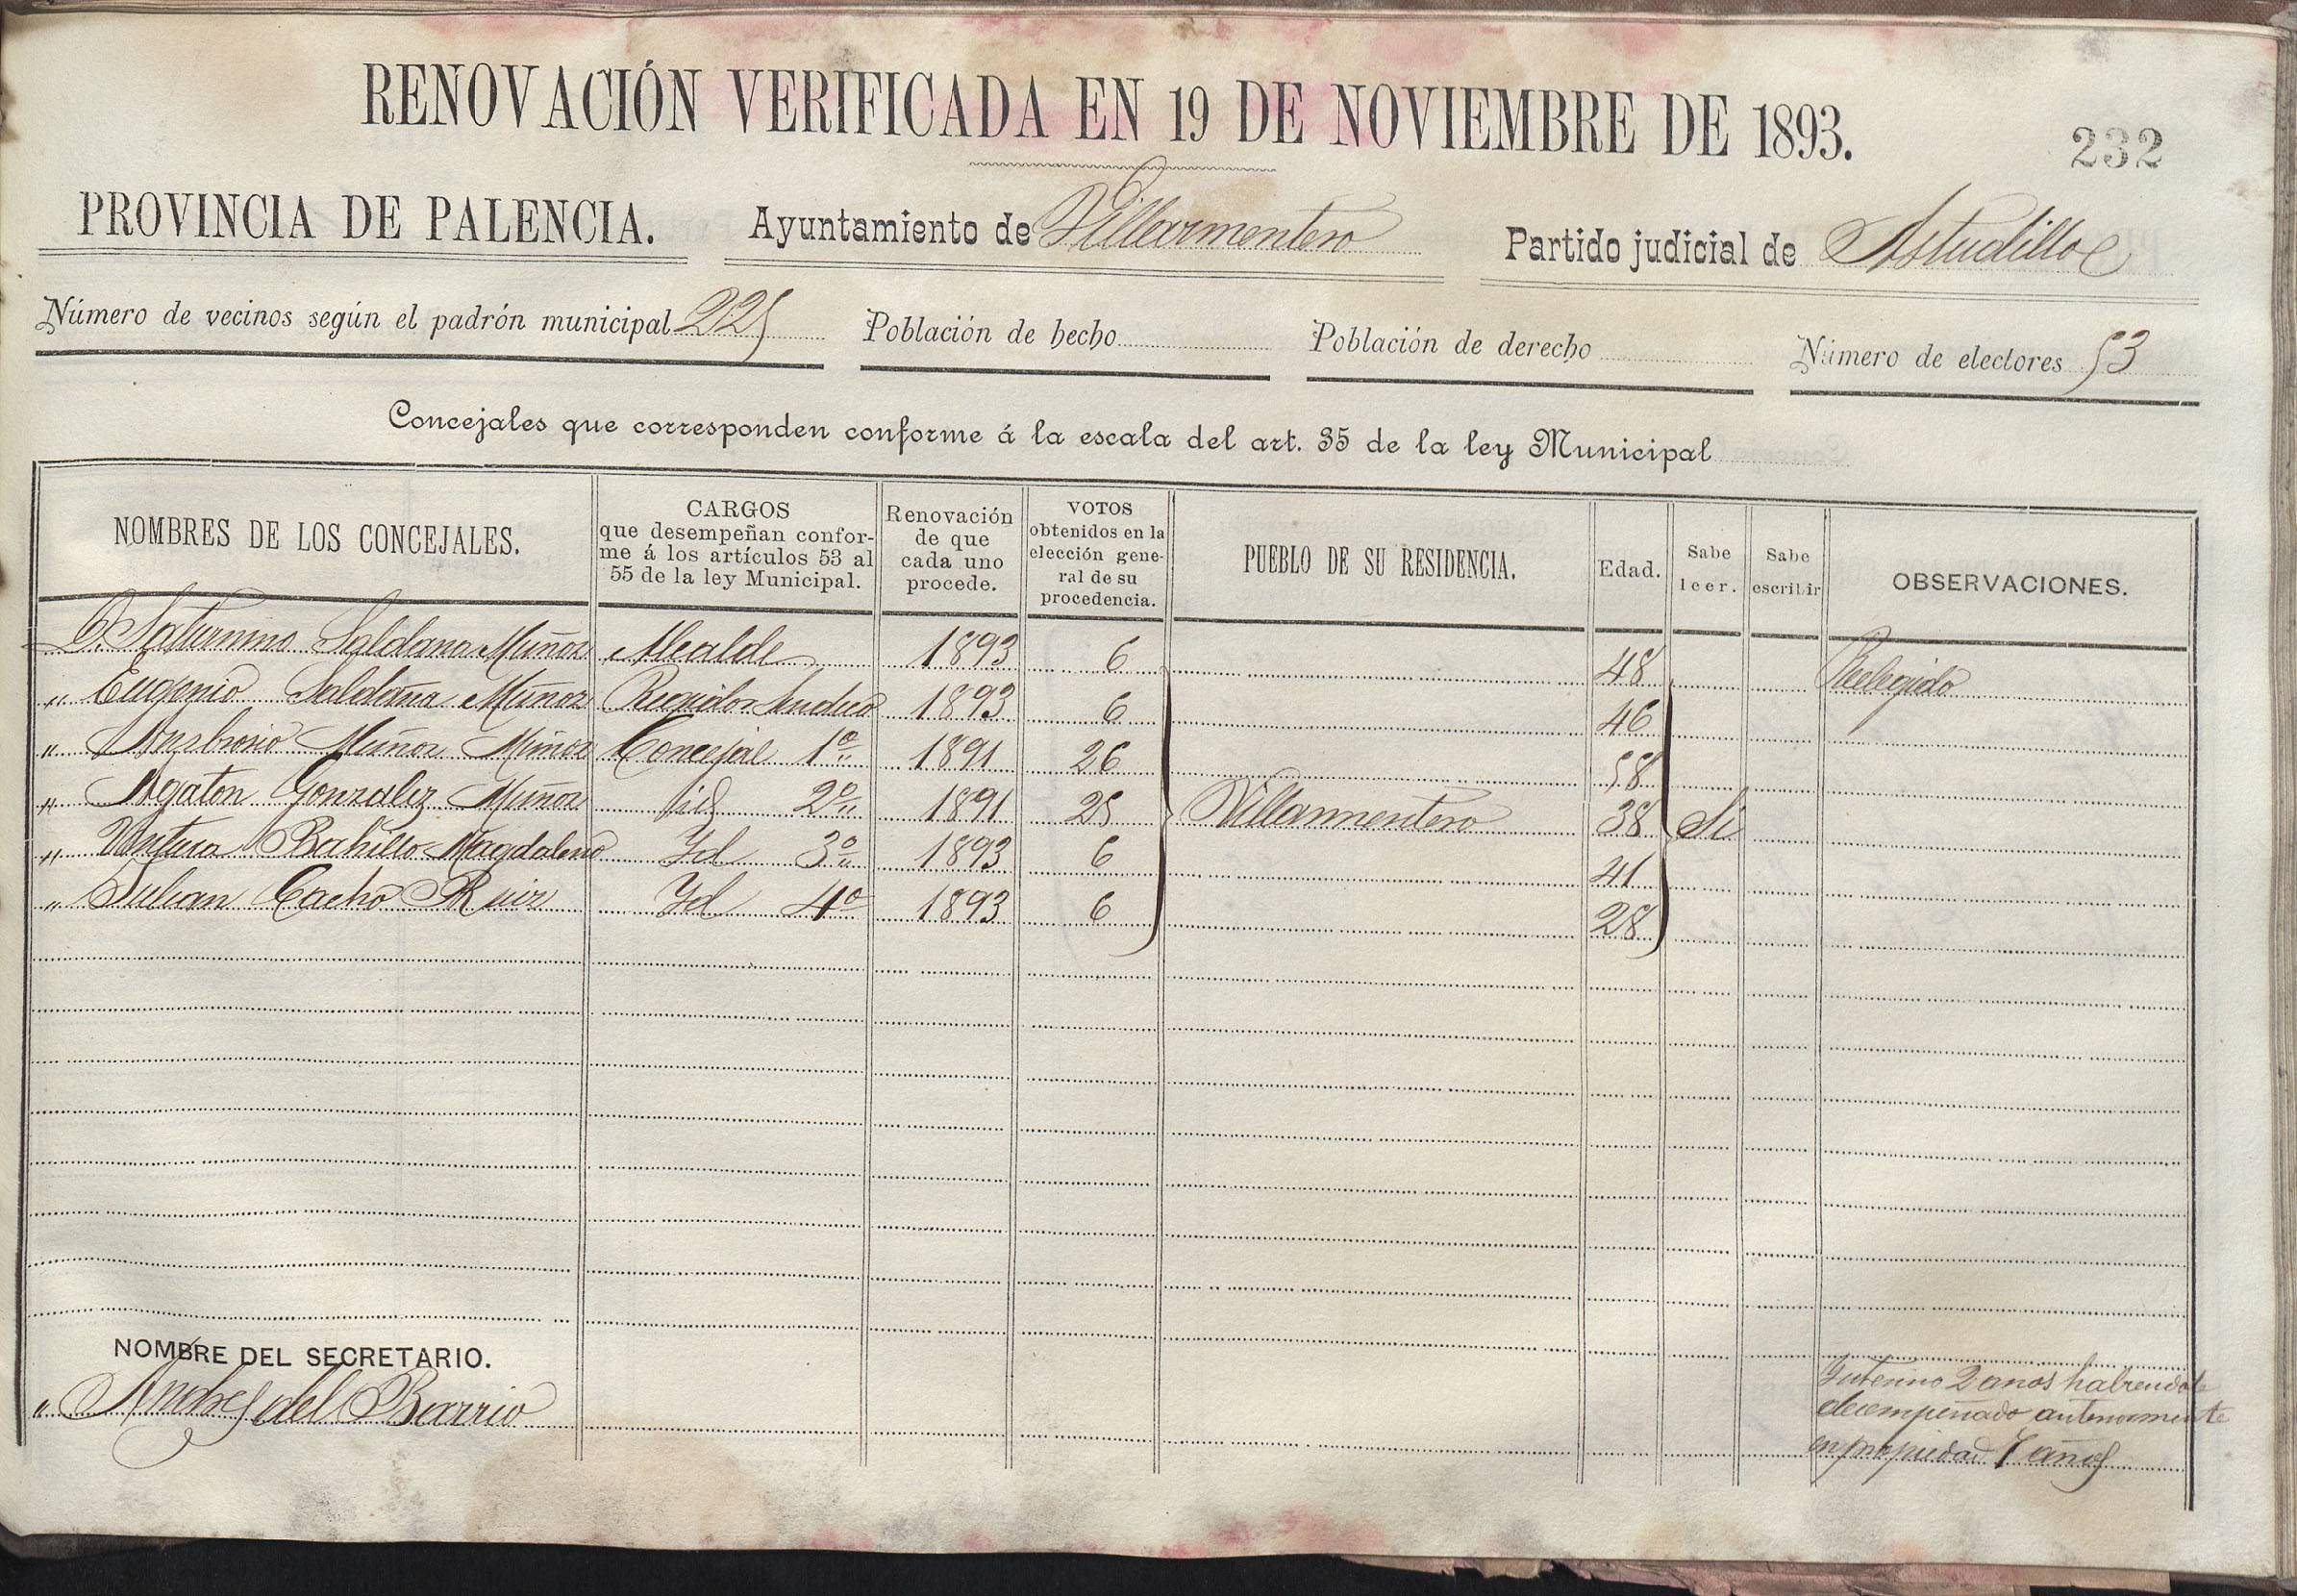 RENOVACIÓN VERIFICADA EN 19 DE NOVIEMBRE DE 1893.
232
PROVINCIA DE PALENCIA. Ayuntamiento de Villarmentero Partido judicial de Astudillo
Número de vecinos según el padrón municipal 225 Población de hecho Población de derecho Número de electores 53
Concejales que corresponden conforme á la escala del art. 35 de la ley Municipal
NOMBRES DE LOS CONCEJALES. CARGOS que desempeñan confor- Renovación VOTOS PUEBLO DE SU RESIDENCIA. Edad. Sabe Sabe OBSERVACIONES.
me á los artículos 53 al de que obtenidos en la leer. escribir
55 de la ley Municipal. cada uno elección gene-
procede. ral de su
procedencia.
D. Saturnino Saldaña Muñoz Alcalde 1893 6 48 Reelegido
" Eugenio Saldaña Muñoz Regidor Sindico 1893 6 46
" Ambrosio Muñoz Muñoz Concejal 1º 1891 26 58
" Agaton Gonzalez Muñoz id 2º 1891 25 Villarmentero 38 Si
" Ventura Bahillo Magdaleno Id 3º 1893 6 41
" Julian Cacho Ruiz Id 4º 1893 6 28
NOMBRE DEL SECRETARIO.
" Andres del Barrio
Interino 2 anos habiendole
desempeñado anteriormente
en propiedad 7 años